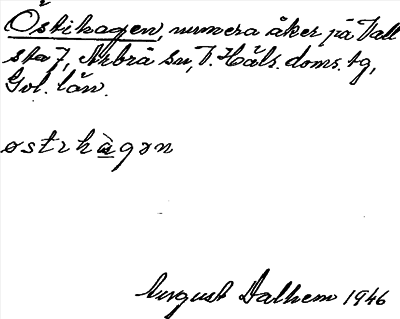 Östihagen, numera åker på Vall
sta 7, Arbrå sn, V. Häls. doms. tg,
Gvl. län.
østɩhàgǝn
August Dalhem 1946